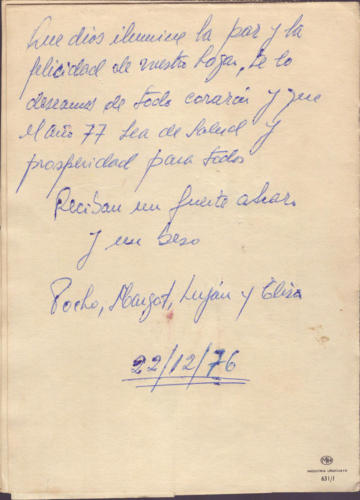 Que dios ilumine la paz y la
felicidad de vuestro hogar, se lo
deseamos de todo corazón y que
el año 77 sea de salud y
prosperidad para todos
Reciban un fuerte abrazo
y un beso
Pocho, Margot, Luján y Elisa
22/12/76
MH
INDUSTRIA URUGUAYA
631/1